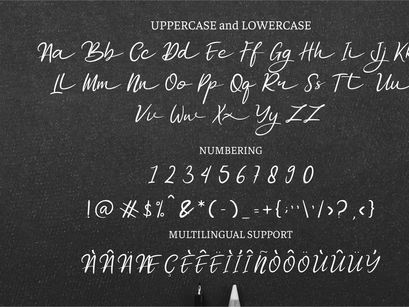 UPPERCASE and LOWERCASE
Aa Bb Cc Dd Ee Ff Gg Hh Ii Jj K
Ll Mm Nn Oo Pp Qq Rr Ss Tt Uu
Vv Ww Xx Yy ZZ
NUMBERING
1 2 3 4 5 6 7 8 9 0
!@#$%^&*(-)_=+{;:'"\'/>?,<}
MULTILINGUAL SUPPORT
ÀÂÄÆÇÈÊËÌÍÎÑÒÔÖÙÛÜÝ